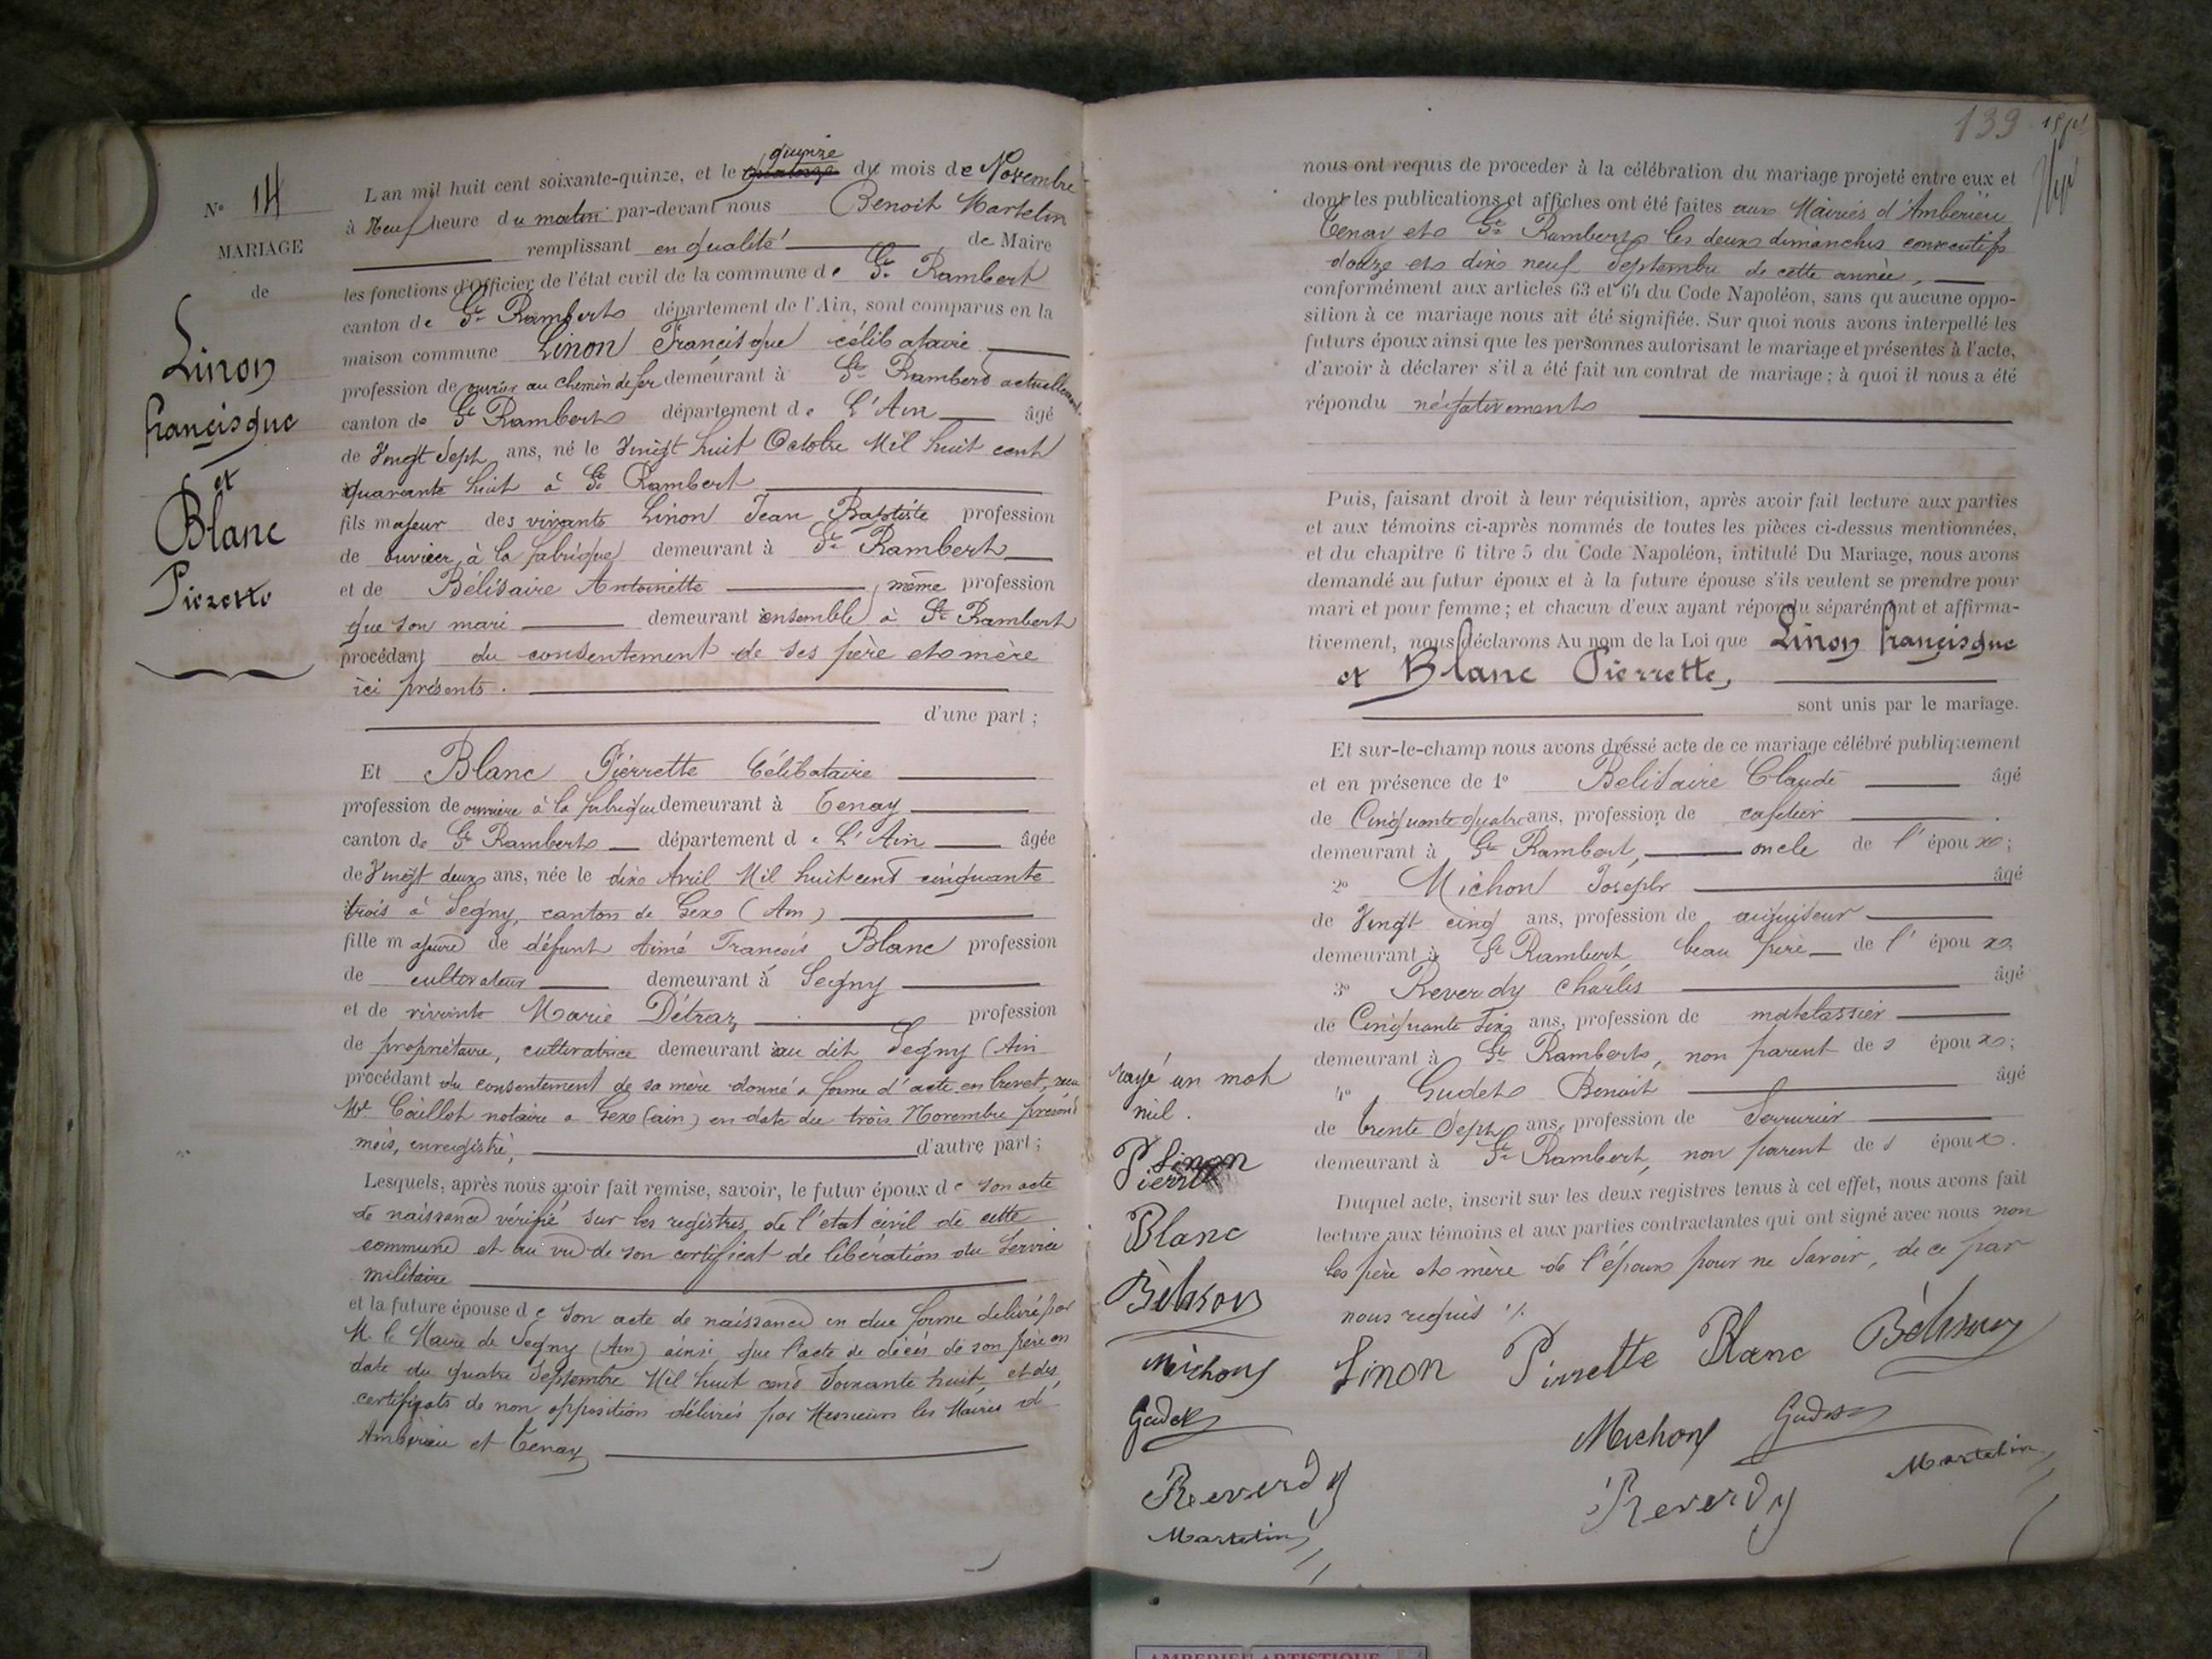 N° 14
MARIAGE
de
Linon
francisque
et
Blanc
Pierette
quinze
L'an mil huit cent soixante-quinze, et le quatorze du mois de Novembre
à Neuf heure du matin par-devant nous Benoit Martelin
remplissant en qualité de Maire
les fonctions d'Officier de l'état civil de la commune de St. Rambert
canton de St. Rambert département de l'Ain, sont comparus en la
maison commune Linon Francisque célibataire
profession de ouvrier au chemin de fer demeurant à St. Rambert actuellement
canton de St Rambert département de L'Ain âgé
de Vingt Sept ans, né le Vingt huit Octobre Mil huit cent
quarante huit à St Rambert
fils majeur des vivants Linon Jean Baptiste profession
de ouvrier à la fabrique demeurant à St Rambert
et de Bélisaire Antoinette même profession
que son mari demeurant ensemble à St Rambert
procédant du consentement de ses père et mère
ici présents.
d'une part ;
Et Blanc Pierrette Célibataire
profession de ouvrière à la fabrique demeurant à Tenay
canton de St Rambert département de L'Ain âgée
de Vingt deux ans, née le dix Avril Mil huit cent cinquante
trois à Segny, canton de Gex (Ain)
fille majeure de défunt Aimé François Blanc profession
de cultivateur demeurant à Segny
et de vivante Marie Détraz profession
de propriétaire, cultivatrice demeurant au dit Segny (Ain
procédant du consentement de sa mère donné à forme d'acte en brevet, reçu
Me Caillot notaire a Gex (ain) en date du trois Novembre présent
mois, enregistré, d'autre part ;
Lesquels, après nous avoir fait remise, savoir, le futur époux de son acte
de naissance vérifié sur les registres de l'état civil de cette
commune et au vu de son certificat de libération du service
militaire
et la future épouse de son acte de naissance en due forme délivré par
M. le Maire de Segny (Ain) ainsi que l'acte de décès de son père en
date du quatre Septembre Mil huit cent soixante huit, et des
certificats de non opposition délivrés par Messieurs les Maires d'
Ambérieu et Tenay
139
nous ont requis de proceder à la célébration du mariage projeté entre eux et
dont les publications et affiches ont été faites aux Mairies d'Ambérieu
Tenay et St Rambert les deux dimanches consecutifs
douze et dix neuf Septembre de cette année,
conformément aux articles 63 et 64 du Code Napoléon, sans qu'aucune oppo-
sition à ce mariage nous ait été signifiée. Sur quoi nous avons interpellé les
futurs époux ainsi que les personnes autorisant le mariage et présentes à l'acte,
d'avoir à déclarer s'il a été fait un contrat de mariage ; à quoi il nous a été
répondu négativement
Puis, faisant droit à leur réquisition, après avoir fait lecture aux parties
et aux témoins ci-après nommés de toutes les pièces ci-dessus mentionnées,
et du chapitre 6 titre 5 du Code Napoléon, intitulé Du Mariage, nous avons
demandé au futur époux et à la future épouse s'ils veulent se prendre pour
mari et pour femme ; et chacun d'eux ayant répondu séparément et affirma-
tivement, nous déclarons Au nom de la Loi que Linon francisque
et Blanc Pierrette,
sont unis par le mariage.
Et sur-le-champ nous avons dressé acte de ce mariage célébré publiquement
et en présence de 1° Belisaire Claude âgé
de Cinquante quatre ans, profession de cafetier
demeurant à St Rambert, oncle de l'époux ;
2° Michon Joseph âgé
de Vingt cinq ans, profession de aiguiseur
demeurant à St Rambert, beau frère de l'époux
3° Reverdy Charles âgé
de Cinquante Six ans, profession de matelassier
demeurant à St Rambert, non parent des époux ;
4° Gudet Benoit âgé
de trente Sept ans, profession de Serrurier
demeurant à St Rambert, non parent des époux.
Duquel acte, inscrit sur les deux registres tenus à cet effet, nous avons fait
lecture aux témoins et aux parties contractantes qui ont signé avec nous non
les père et mère de l'époux pour ne savoir, de ce par
nous requis ./.
Linon Pierrette Blanc
Michon Gudet
Reverdy Martelin
rayé un mot
nul.
Linon
Blanc
Michon
Gudet
Reverdy
Martelin
AMBERIEU ARTISTIQUE